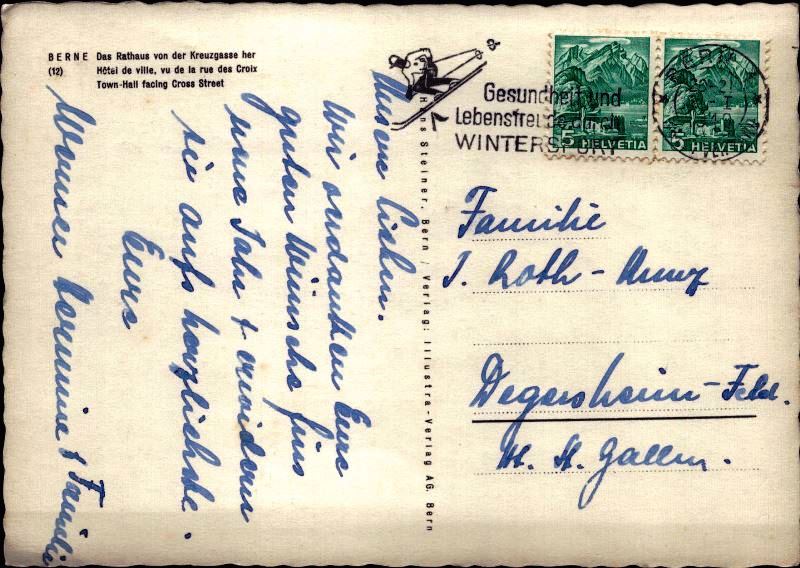 BERNE Das Rathaus von der Kreuzgasse her
(12) Hôtel de ville, vu de la rue des Croix
Town-Hall facing Cross Street
Gesundheit und
Lebensfreude durch
WINTERSPORT
BERN
5 HELVETIA
5 HELVETIA
Hans Steiner, Bern / Verlag: Illustra-Verlag AG. Bern
Unsere Lieben.
Wir verdanken Eure
guten Wünsche fürs
neue Jahr & erwidern
sie aufs herzlichste.
Eure
Hermine & Familie
Familie
J. Roth-Kunz
Degersheim-Feld.
Kt. St. Gallen.